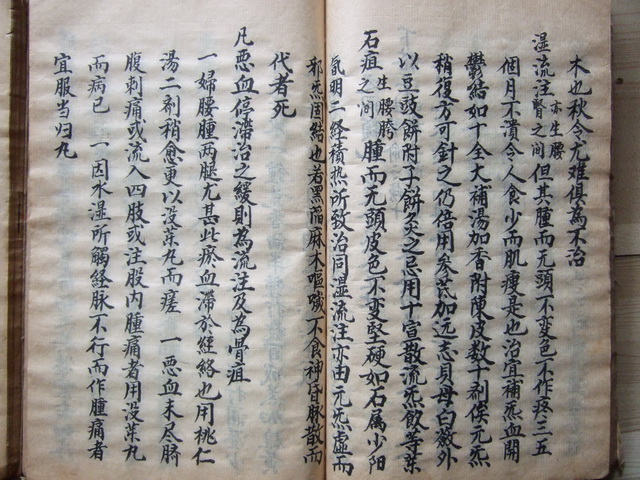 木也秋令尤难俱為不治
湿流注亦生腰腎之間但其腫而无頭不变色不作疼三五
個月不潰令人食少而肌瘦是也治宜補炁血開
鬱結如十全大補湯加香附陳皮数十剤俟元炁
稍復方可針之仍倍用参芪加远志貝母白蔹外
以豆豉餅附子餅灸之忌用十宣散流炁飲等藥
石疽生腰胯之间腫而无頭皮色不变堅硬如石属少阳
阳明二经積热所致治同湿流注亦由元炁虚而
邪炁固結也若黑陷麻木嘔噦不食神昏脉散而
代者死
凡悪血停滞治之緩則為流注及為骨疽
一婦腰腫两腿尤甚此瘀血滞於经絡也用桃仁
湯二剤稍愈更以没藥丸而瘥 一悪血未尽臍
腹刺痛或流入四肢或注股内腫痛者用没藥丸
而病已 一因水湿所觸经脉不行而作腫痛者
宜服当归丸